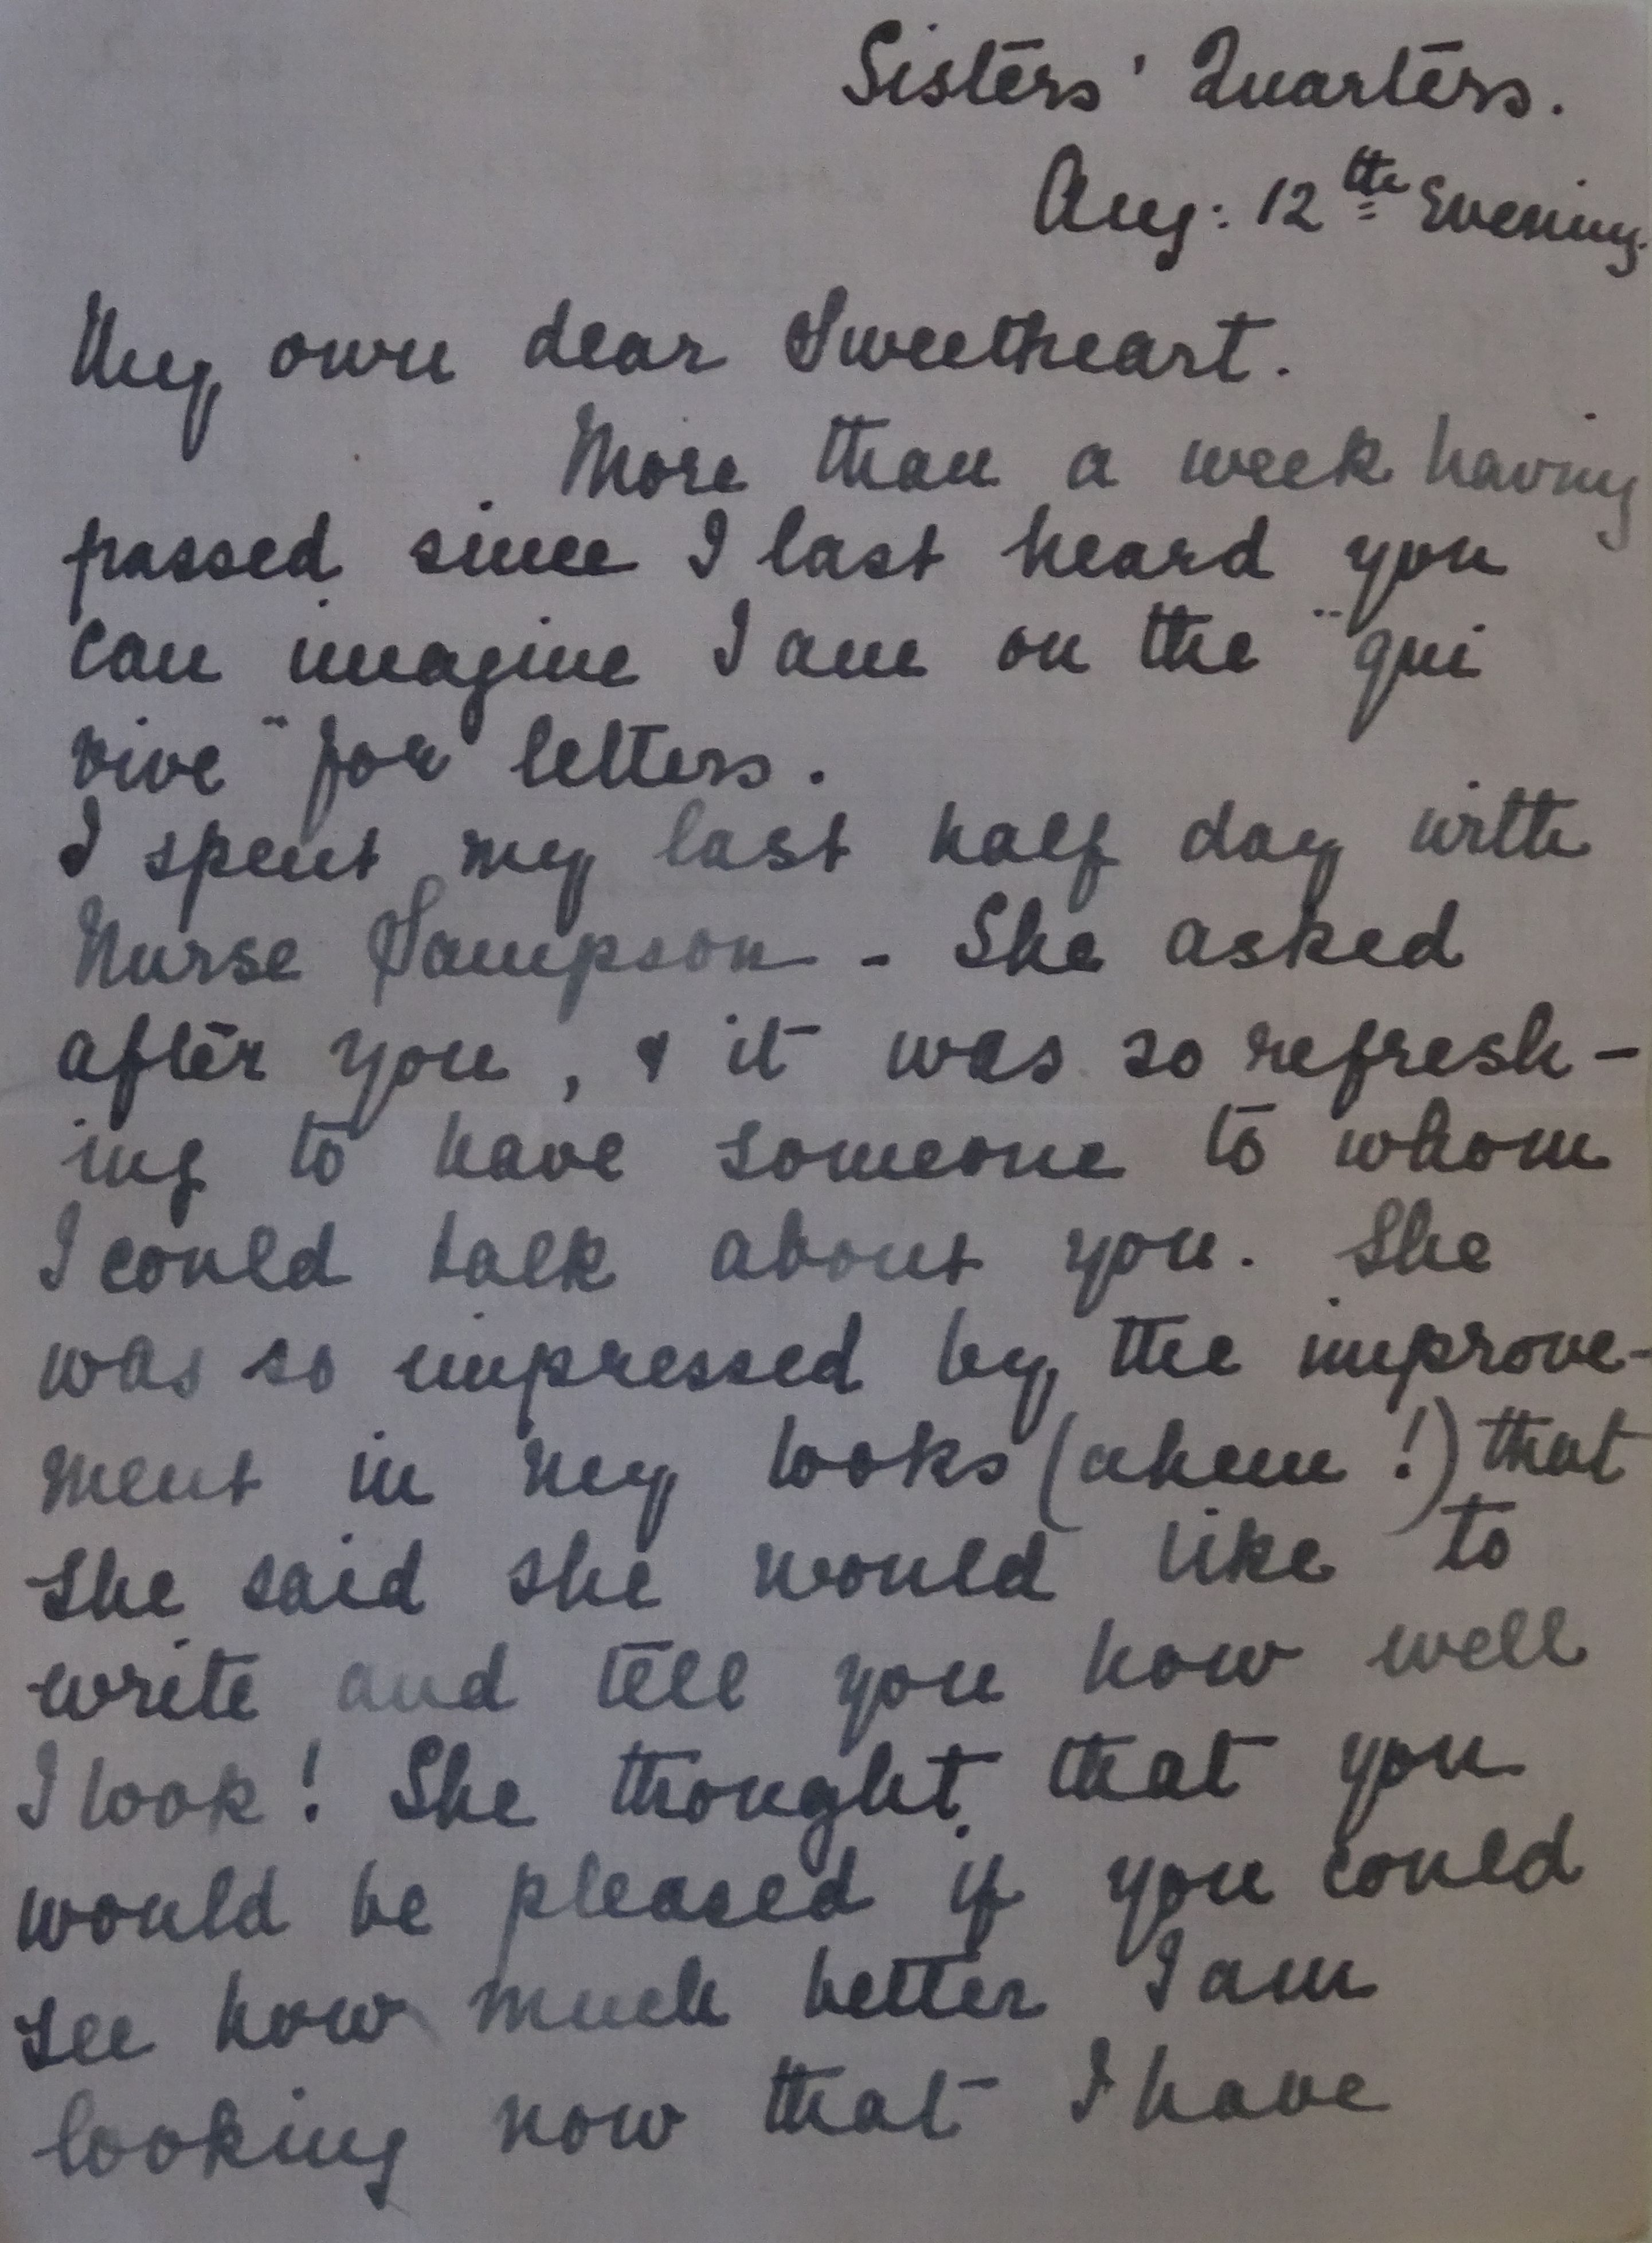 Sisters' Quarters.
Aug: 12th Evening.
My own dear Sweetheart.
More than a week having
passed since I last heard you
can imagine I am on the "qui
vive" for letters.
I spent my last half day with
Nurse Sampson - She asked
after you, & it was so refresh-
ing to have someone to whom
I could talk about you. She
was so impressed by the improve-
ment in my looks (ahem!) that
she said she would like to
write and tell you how well
I look! She thought that you
would be pleased if you could
see how much better I am
looking now that I have